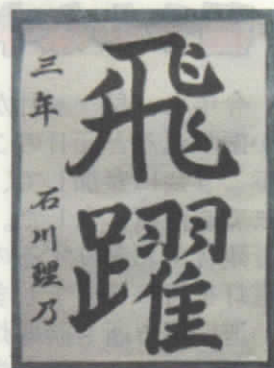 飛躍
三年 石川理乃